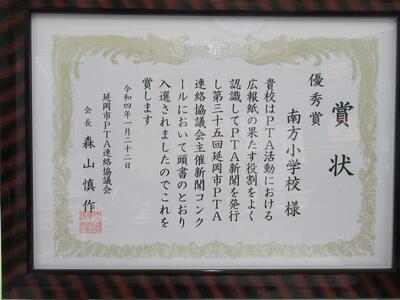 賞状
優秀賞
南方小学校 様
貴校はPTA活動における
広報紙の果たす役割をよく
認識してPTA新聞を発行
し第三十五回延岡市PTA
連絡協議会主催新聞コンク
ールにおいて頭書のとおり
入選されましたのでこれを
賞します
令和四年一月二十二日
延岡市PTA連絡協議会
会長 森山慎作